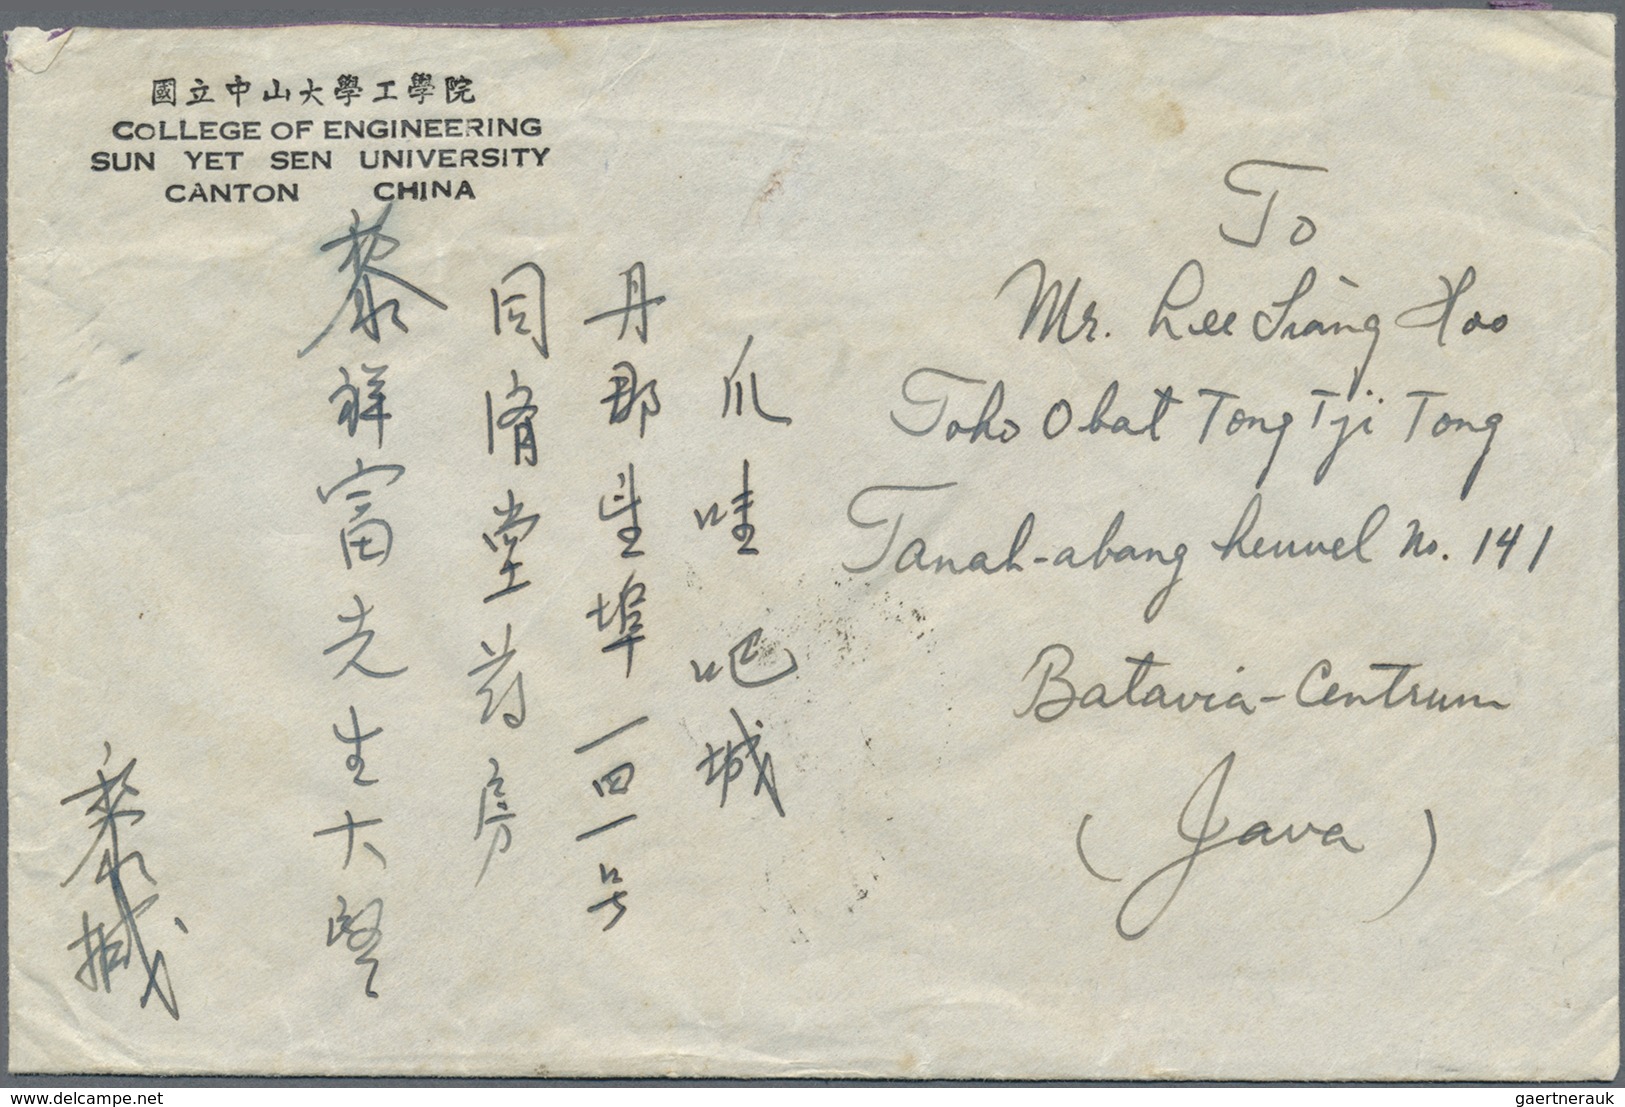 國立中山大學工學院
COLLEGE OF ENGINEERING
SUN YET SEN UNIVERSITY
CANTON CHINA
To
Mr. Lee Siàng Hoo
Toko Obat Tong Tji Tong
Tanah-abang heuvel No. 141
Batavia-Centrum
(Java)
爪哇吧城
丹那望埠一四一号
同濟堂药房
黎祥富先生大
黎緘
www.delcampe.net
gaertnerauk